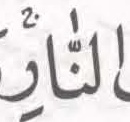 النَّارِۚ